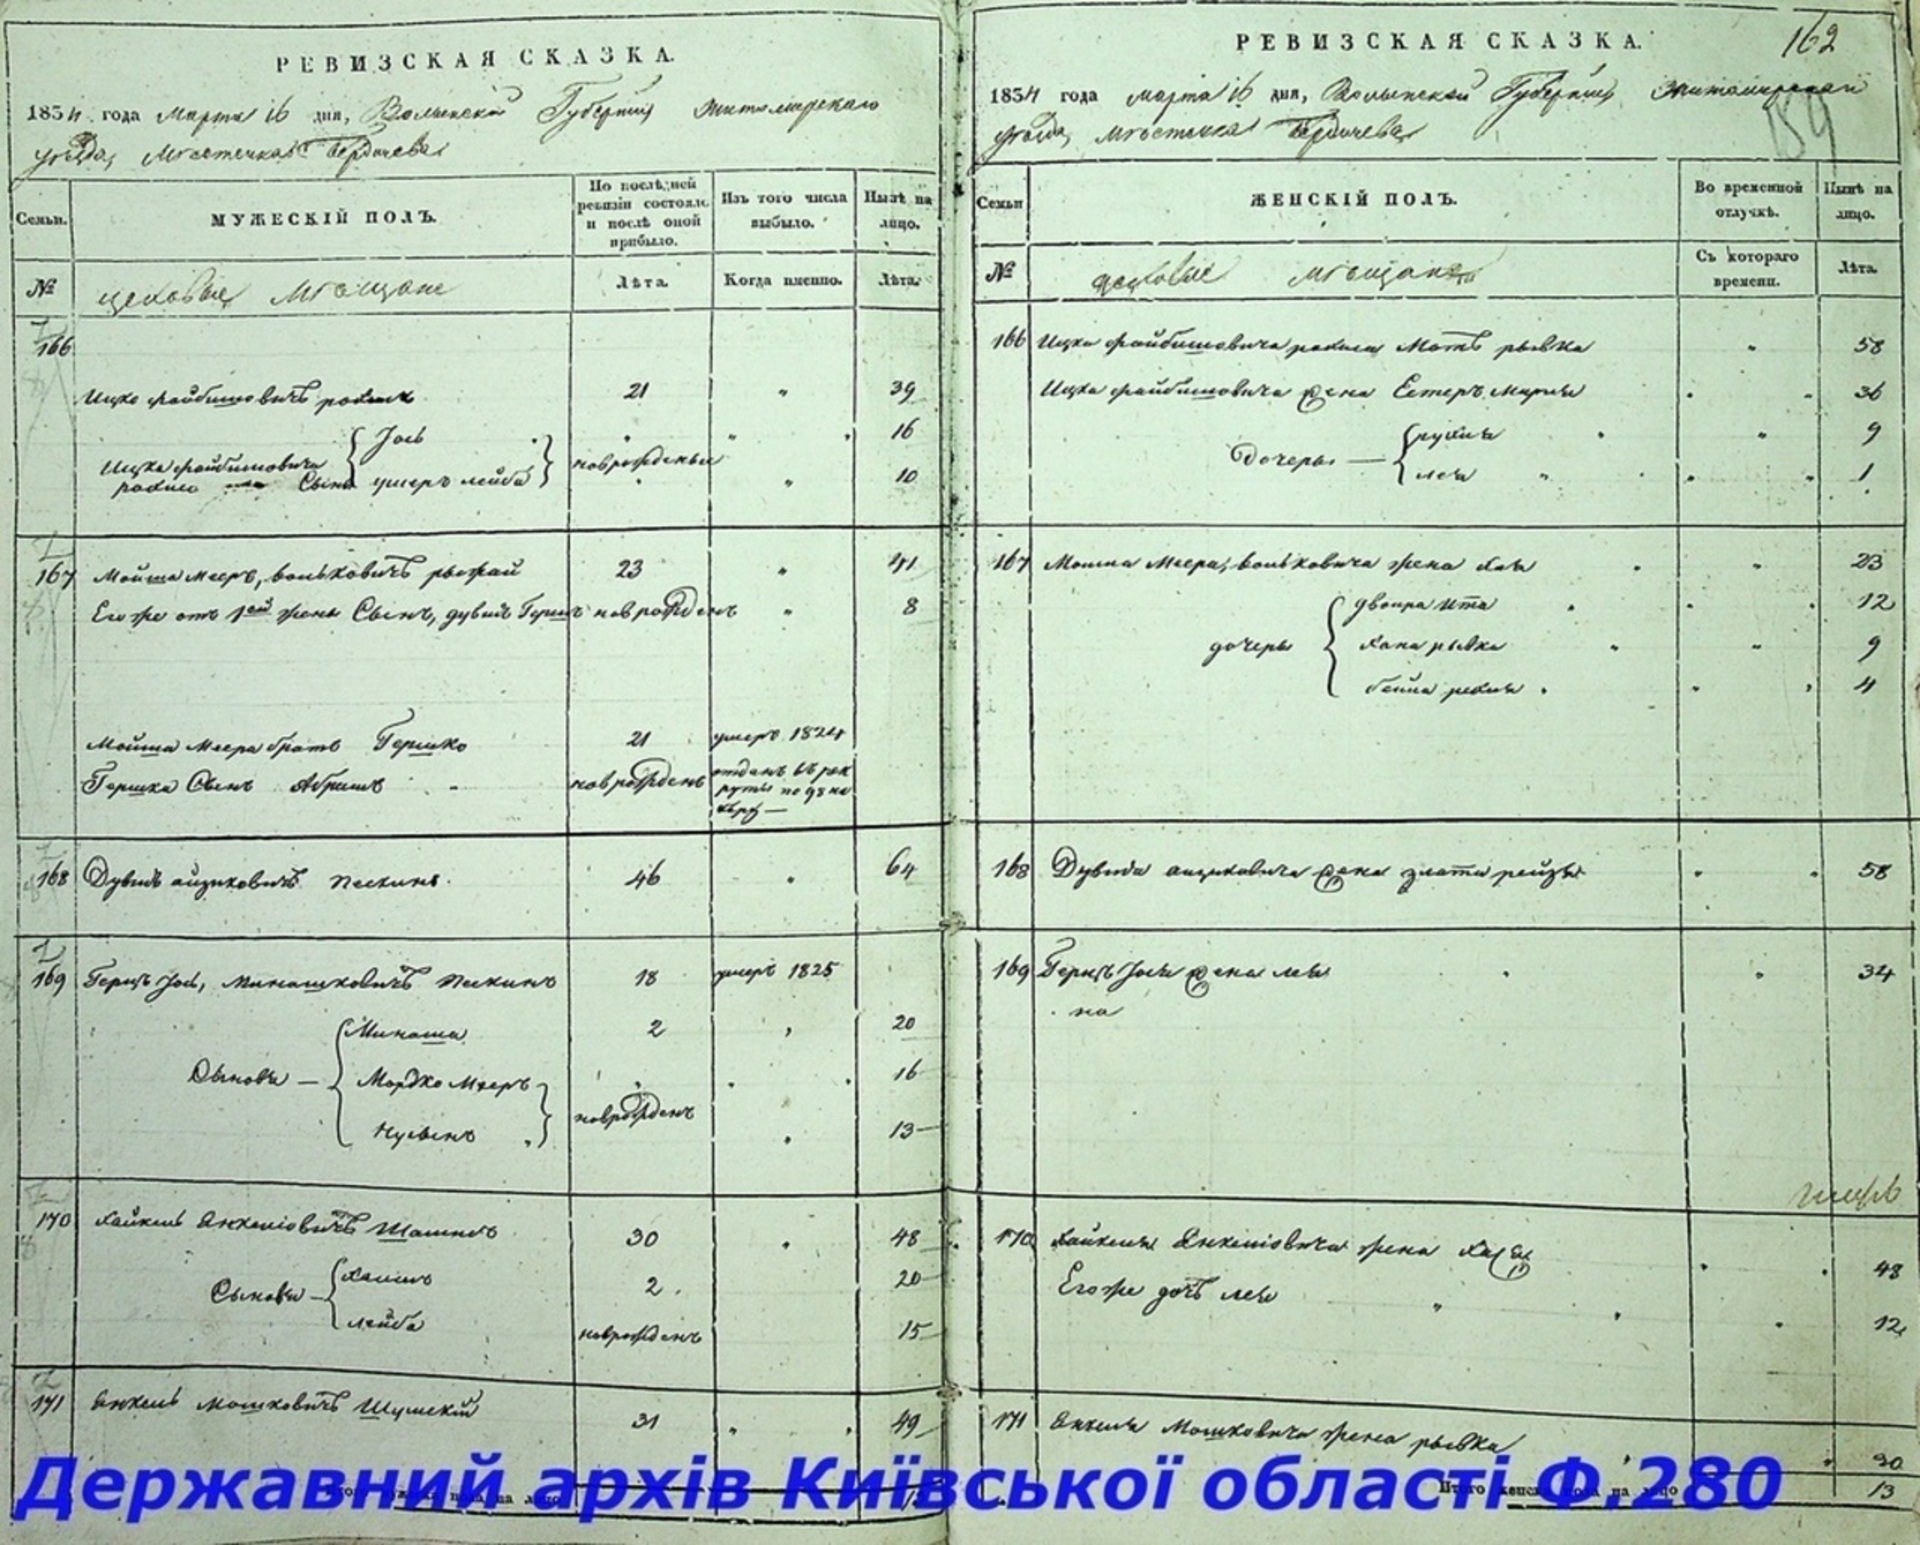 РЕВИЗСКАЯ СКАЗКА.
1834 года Марта 16 дня, Волынской Губернии Житомирскаго
уезда, Мѣстечка Бердичева
Семьи.
МУЖЕСКІЙ ПОЛЪ.
По послѣдней
ревизіи состояло
и послѣ оной
прибыло.
Изъ того числа
выбыло.
Нынѣ на
лицо.
№
цеховые Мѣщане
Лѣта.
Когда именно.
Лѣта.
166
Ицко Файбишовичъ 21 " 39
Ицка Файбишовича Сыны Іось " 16
ушеръ лейба новрожденые " 10
167 Мойша Мееръ, вольковичъ рыжай 23 " 41
Егоже отъ 1ой жены Сынъ, дувидъ Гершъ новрожденъ " 8
Мойша Меера братъ Гершко 21 умеръ 1824
Гершка Сынъ Абрамъ новрожденъ отданъ въ рек
руты
168 Дувидъ айзиковичъ Пескинъ 46 " 64
169 Герцъ Іось, Минашковичъ Пескинъ 18 умеръ 1825
Сыновья Минаша 2 " 20
Мордко Мееръ " 16
новрожденъ
Нусынъ " 13
170 Хайкель Янкеліовичъ 30 " 48
Сыновья Хаимъ 2 20
лейба новрожденъ 15
171 Янкель Мошковичъ Шумскій 31 " 49
РЕВИЗСКАЯ СКАЗКА.
162
159
1834 года марта 16 дня, Волынской Губернии Житомирскай
уезда, мѣстечка Бердичева
Семьи
ЖЕНСКІЙ ПОЛЪ.
Во временной
отлучкѣ.
Нынѣ на
лицо.
№
цеховые мѣщане
Съ котораго
времени.
Лѣта.
166 Ицка Файбишовича Мать рывка " 58
Ицка Файбишовича жена Естеръ Марья " 36
Дочеры рухля " 9
лея " 1
167 Мошка Меера, вольковича жена хая " 23
двойра ита " 12
дочеры хана рывка " 9
бейла рехля " 4
168 Дувида айциковича жена злата рейзя " 58
169 Герцъ Іося жена лея " 34
на
170 Хайкеля Янкеліовича жена 48
Егоже дочь лея " 12
171 Янкеля Мошковича жена рывка 30
Итого женска пола на лицо 13
Державний архів Київської області Ф.280